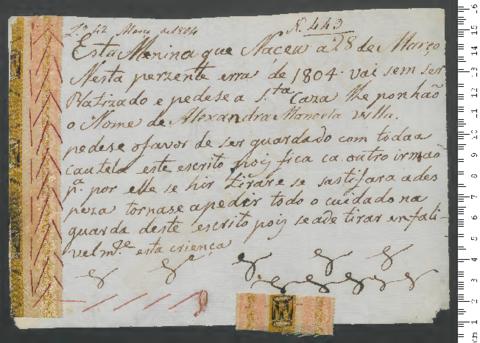 Lº 42 Março de 1804 N. 443
Esta Menina que Naceu a 28 de Março
Nesta perzente erra de 1804. vai sem ser
Batizado e pedese a Sta Caza lhe ponhaõ
o Nome de Alexandra Manoela
pedese o favor de ser guardado com todaa
cautela este escrito pois fica ca outro irmaõ
pª. por elle se hir tirar e se sastifara a des
peza tornase apedir todo o cuidado na
guarda deste escrito pois se ade tirar enfali
velmte esta crienca